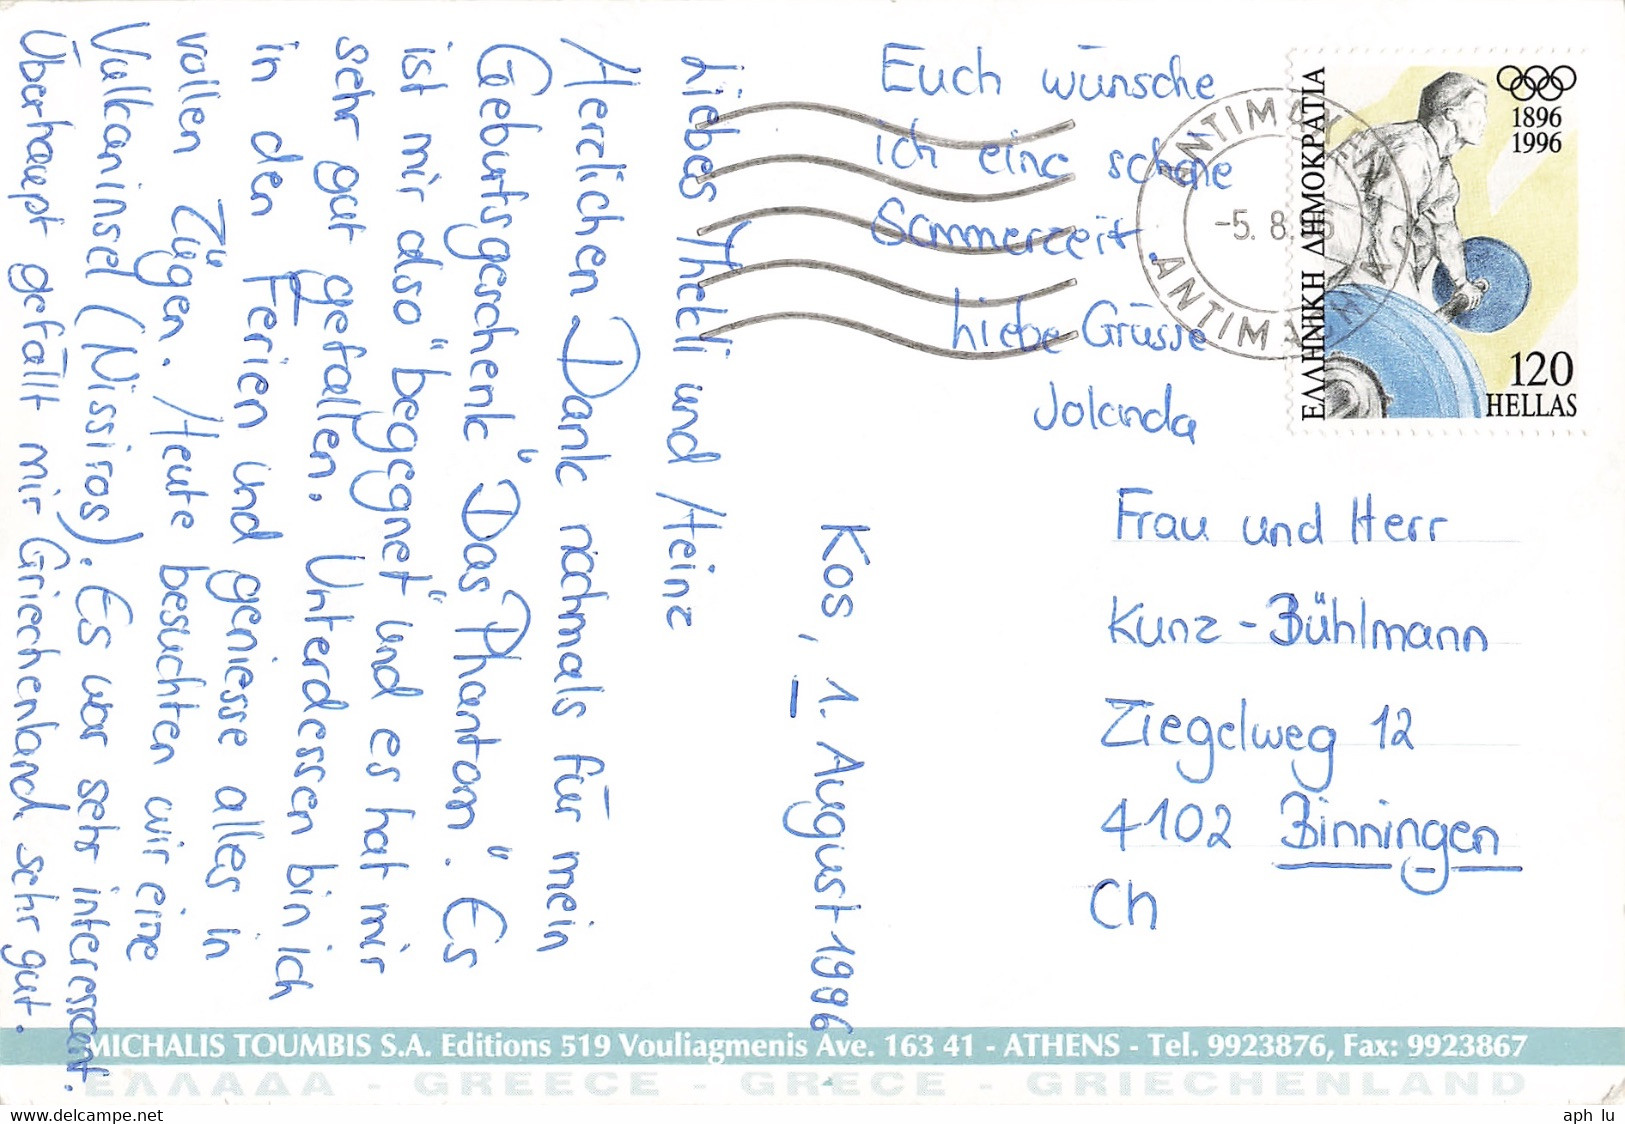 Kos, 1. August 1996
Liebes Thekli und Heinz
Herzlichen Dank nochmals für mein
Geburtsgeschenk "Das Phantom". Es
ist mir also "begegnet" und es hat mir
sehr gut gefallen. Unterdessen bin ich
in den Ferien und geniesse alles in
vollen Zügen. Heute besuchten wir eine
Vulkaninsel (Nissiros). Es war sehr interessant.
Überhaupt gefällt mir Griechenland sehr gut.
Euch wünsche
ich eine schöne
Sommerzeit
Liebe Grüsse
Jolanda
Frau und Herr
Kunz-Bühlmann
Ziegelweg 12
4102 Binningen
Ch
ΑΝΤΙΜΑΧΕΙΑ
-5. 8. 96
ANTIMAHIA
ΕΛΛΗΝΙΚΗ ΔΗΜΟΚΡΑΤΙΑ
1896
1996
120
HELLAS
MICHALIS TOUMBIS S.A. Editions 519 Vouliagmenis Ave. 163 41 - ATHENS - Tel. 9923876, Fax: 9923867
ΕΛΛΑΔΑ - GREECE - GRECE - GRIECHENLAND
www.delcampe.net
aph lu